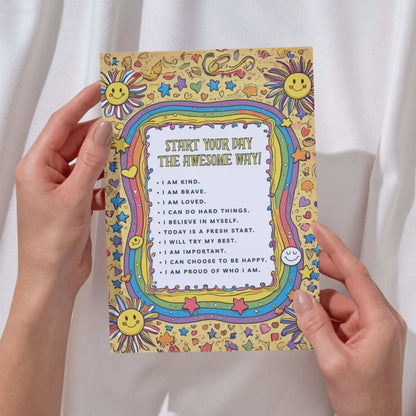 START YOUR DAY
THE AWESOME WAY!
• I AM KIND.
• I AM BRAVE.
• I AM LOVED.
• I CAN DO HARD THINGS.
• I BELIEVE IN MYSELF.
• TODAY IS A FRESH START.
• I WILL TRY MY BEST.
• I AM IMPORTANT.
• I CAN CHOOSE TO BE HAPPY.
• I AM PROUD OF WHO I AM.